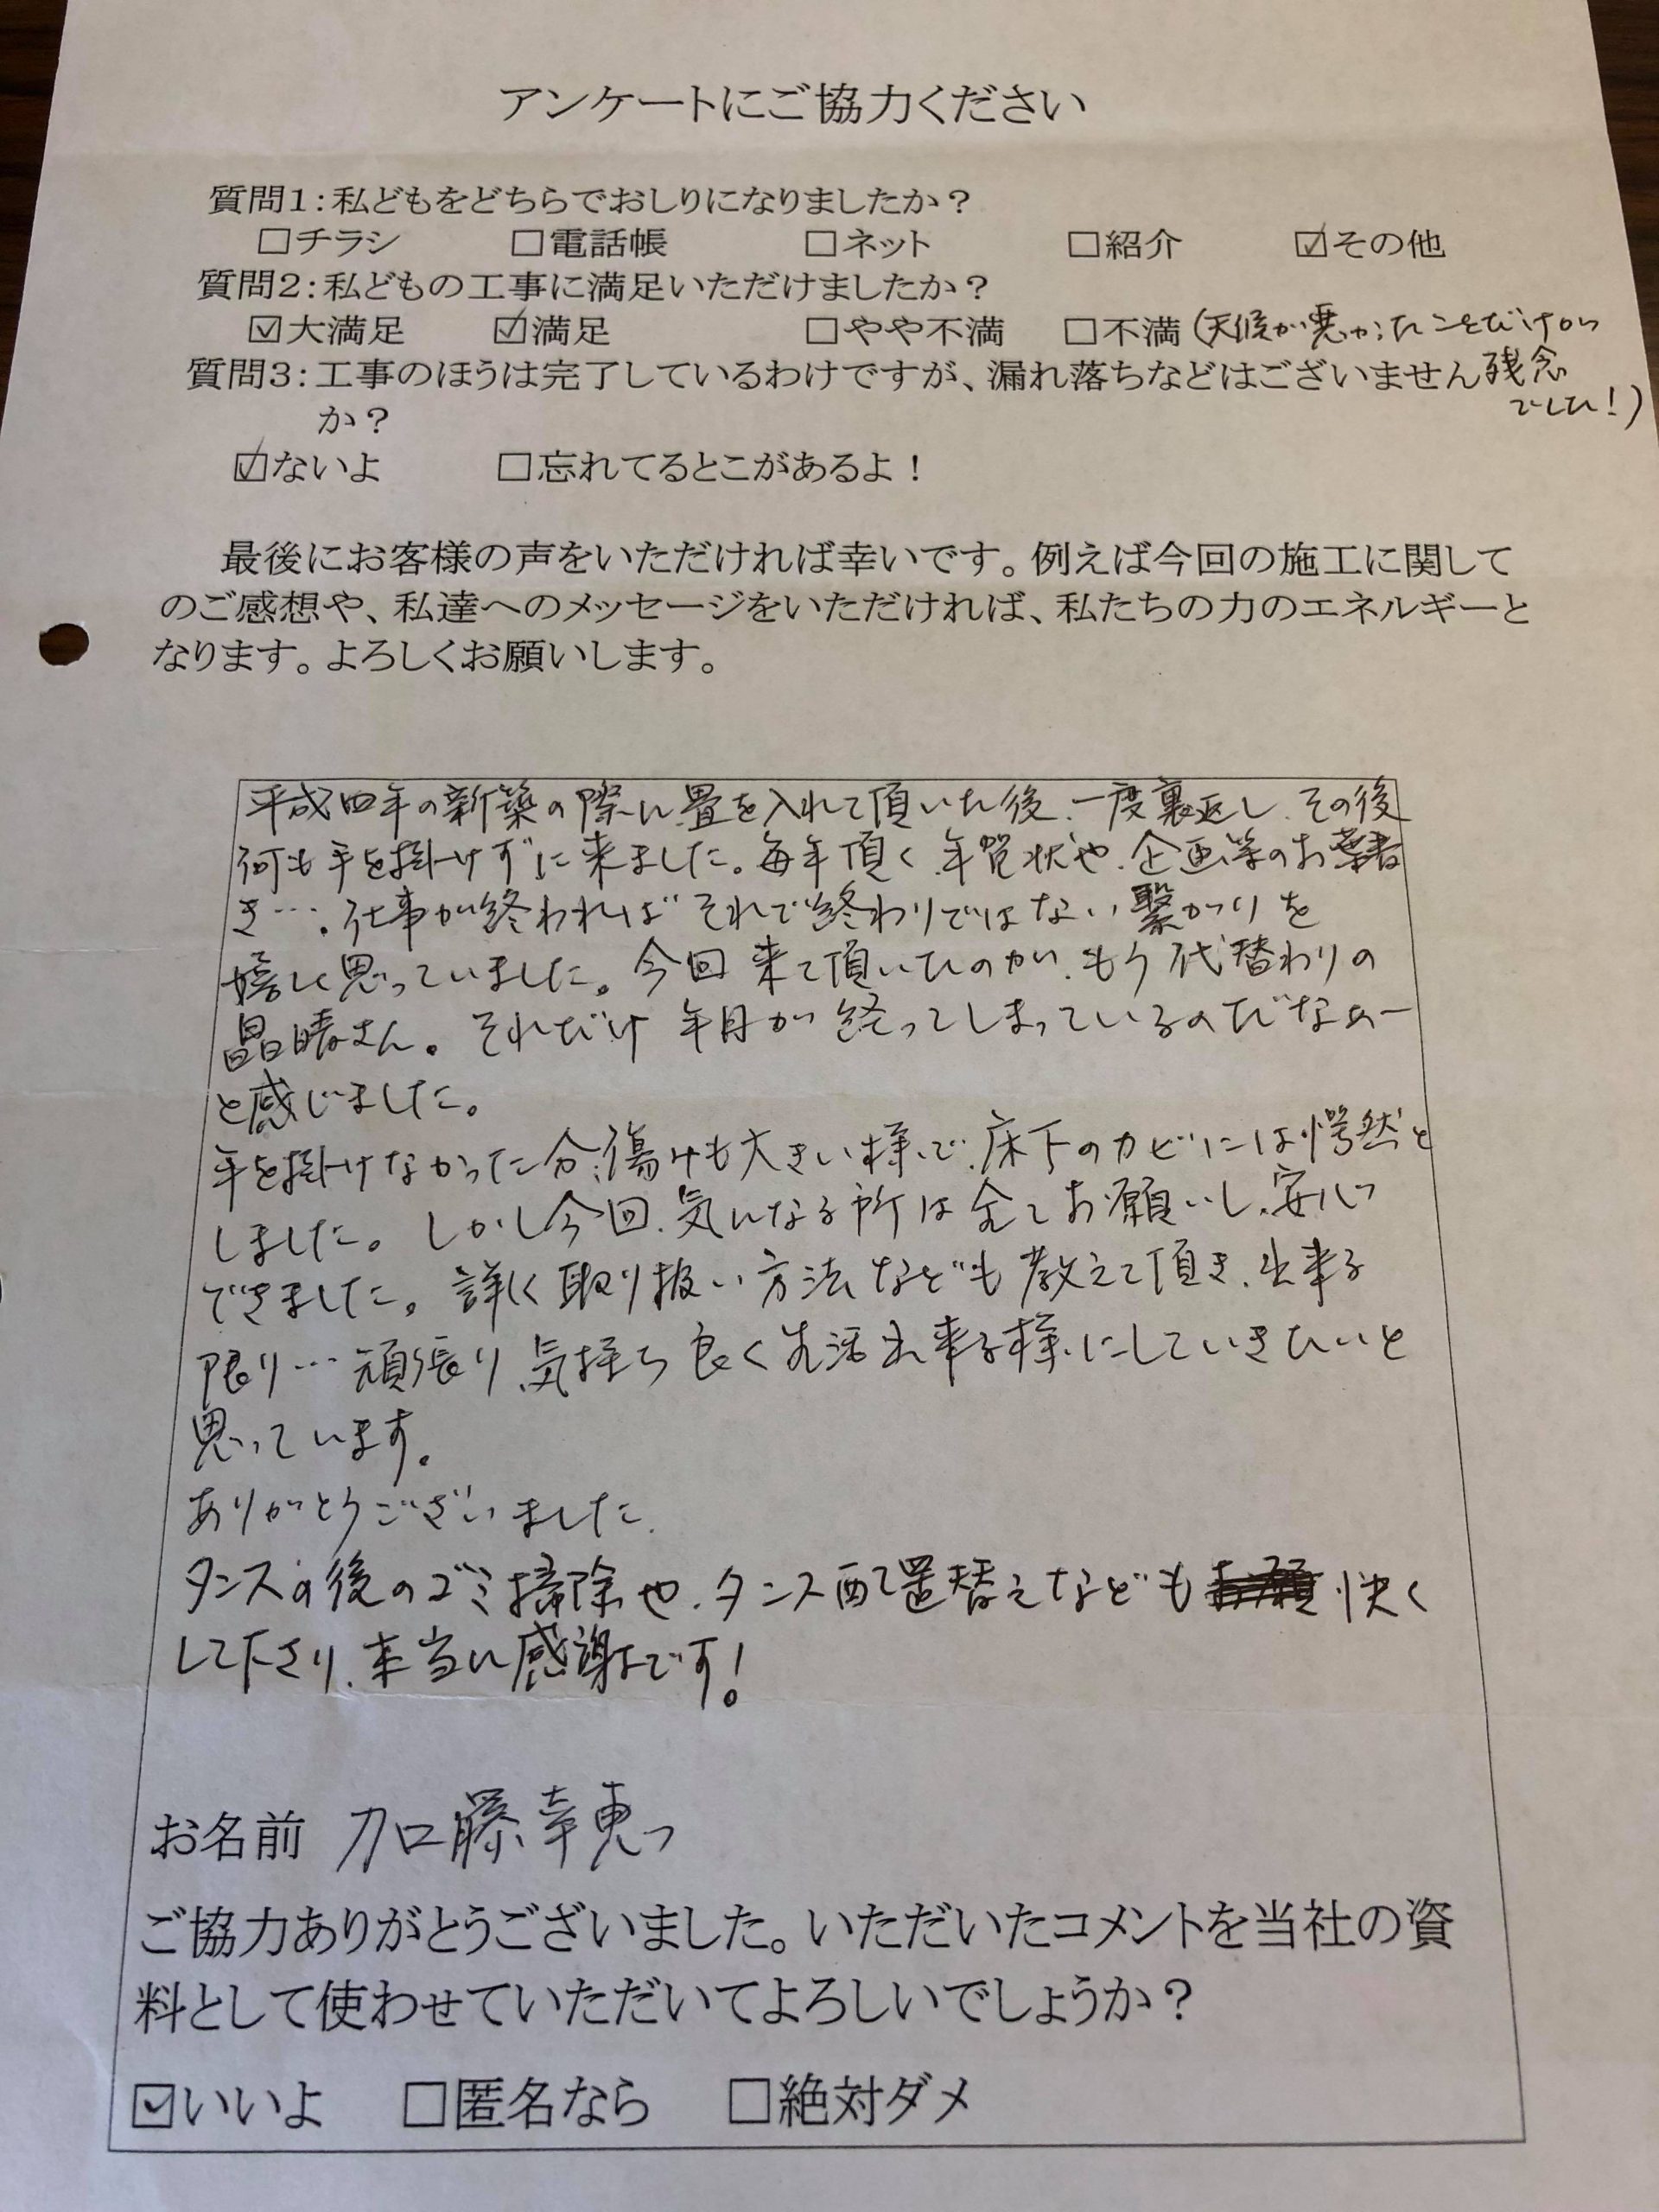 アンケートにご協力ください
質問1:私どもをどちらでおしりになりましたか?
□チラシ □電話帳 □ネット □紹介 ☑その他
質問2:私どもの工事に満足いただけましたか?
☑大満足 ☑満足 □やや不満 □不満 (天候が悪かったことだけが
残念
でした!)
質問3:工事のほうは完了しているわけですが、漏れ落ちなどはございません
か?
☑ないよ □忘れてるとこがあるよ!
最後にお客様の声をいただければ幸いです。例えば今回の施工に関して
のご感想や、私達へのメッセージをいただければ、私たちの力のエネルギーと
なります。よろしくお願いします。
平成四年の新築の際に畳を入れて頂いた後、一度裏返し、その後
何も手を掛けずに来ました。毎年頂く年賀状や、企画等のお葉書
き…。仕事が終わればそれで終わりではない繋がりを
嬉しく思っていました。今回来て頂いたのが、もう代替わりの
昌晴さん。それだけ年月が経ってしまっているのだなぁー
と感じました。
手を掛けなかった分、傷みも大きい様で、床下のカビには愕然と
しました。しかし今回、気になる所は全てお願いし、安心
できました。詳しく取り扱い方法なども教えて頂き、出来る
限り…頑張り、気持ち良く生活出来る様にしていきたいと
思っています。
ありがとうございました。
タンスの後のゴミ掃除や、タンス配置替えなども快く
して下さり、本当に感謝です!
お名前 加藤幸恵
ご協力ありがとうございました。いただいたコメントを当社の資
料として使わせていただいてよろしいでしょうか?
☑いいよ □匿名なら □絶対ダメ